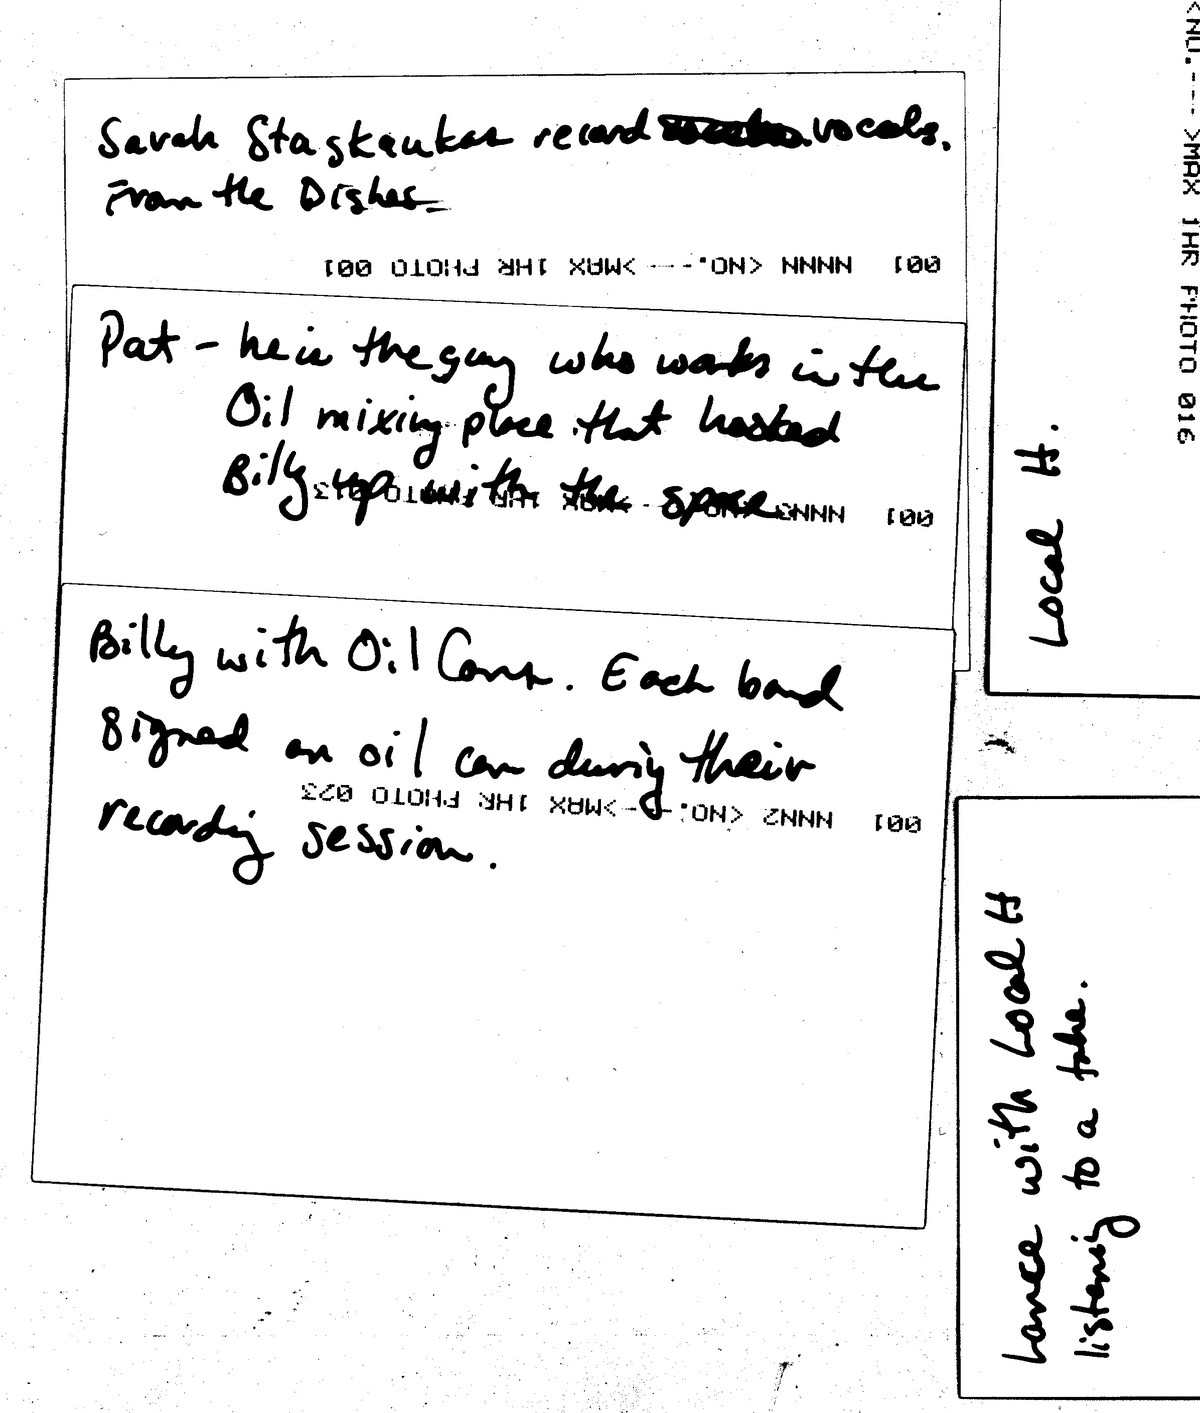 Sarah Staskaukas record vocals.
From the Dishes
001 NNNN <NO.--->MAX 1HR PHOTO 001
Pat - he is the guy who works in the
Oil mixing place that hooked
Billy up with the space
001 NNN3 PHOTO 013
Billy with Oil Cans. Each band
signed an oil can during their
recording session.
001 NNN2 <NO.--->MAX 1HR PHOTO 023
<NO.--->MAX 1HR PHOTO 016
Local H.
Lance with Local H
listening to a take.